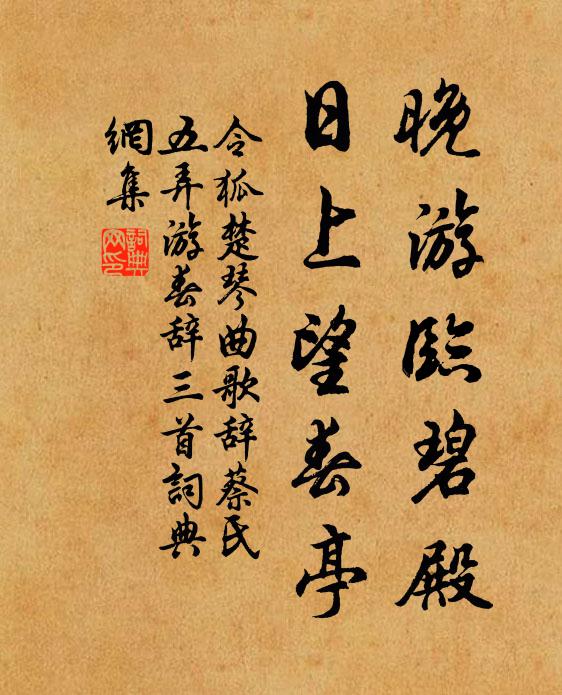 晚游臨碧殿
日上望春亭
令狐楚琴曲歌辞蔡氏
五弄游春辞三首詞典
網集
詞典網印